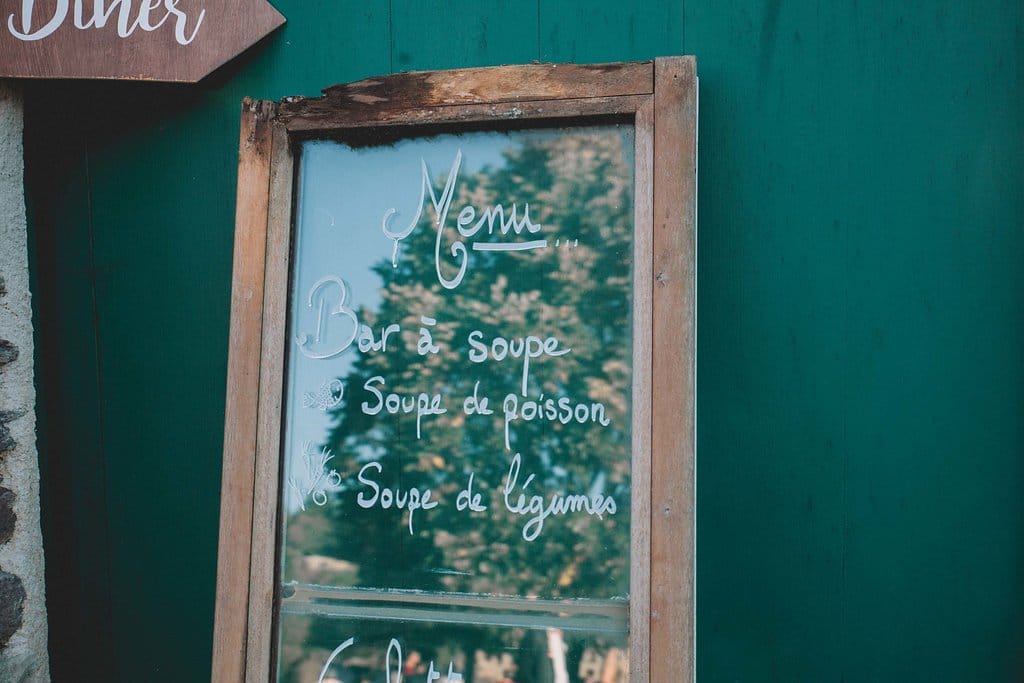 Dîner
Menu...
Bar à soupe
Soupe de poisson
Soupe de légumes